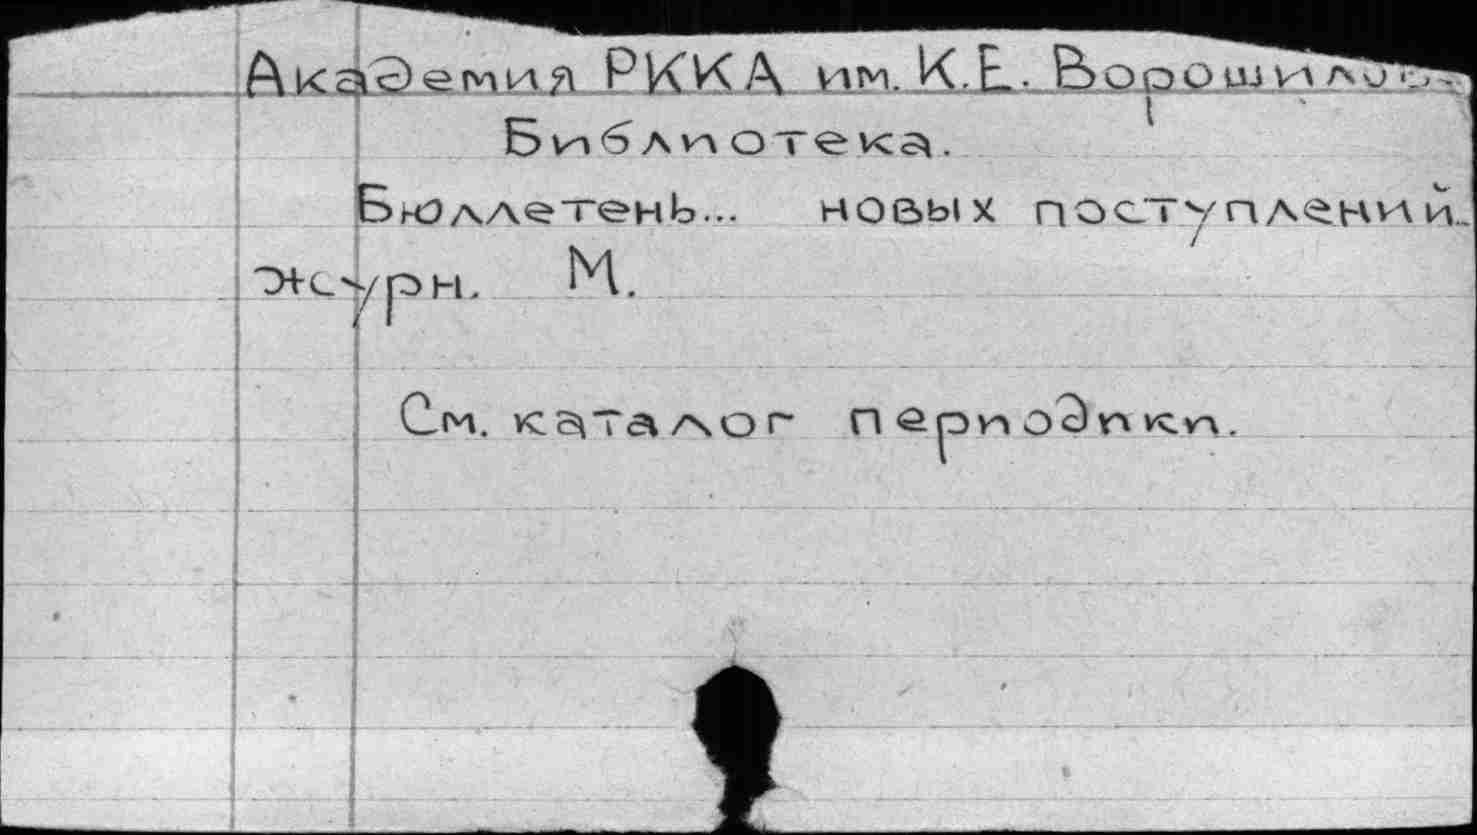 Академия РККА им. К.Е. Ворошилова.
Библиотека.
Бюллетень... новых поступлений..
журн. М.
См. каталог периодики.